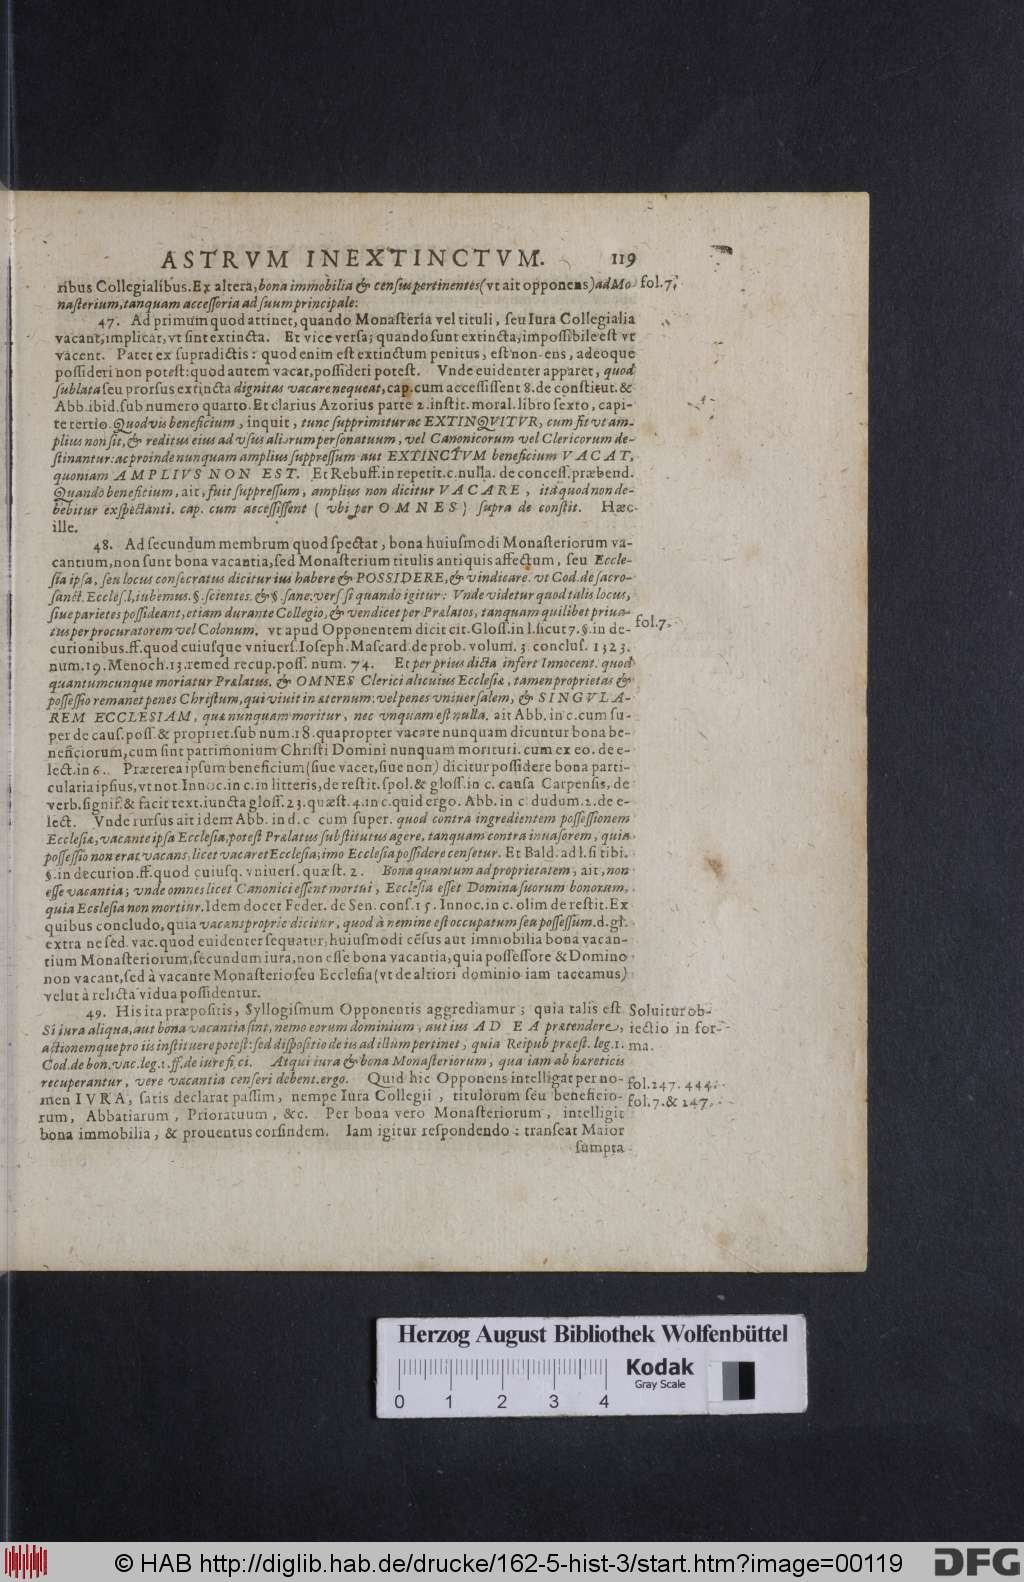 ASTRVM INEXTINCTVM. 119
ribus Collegialibus. Ex altera, bona immobilia & census pertinentes (vt ait opponens) ad Mo- fol. 7.
nasterium, tanquam accessoria ad suum principale:
47. Ad primum quod attinet, quando Monasteria vel tituli, seu Iura Collegialia
vacant, implicat, vt sint extincta. Et vice versa; quando sunt extincta, impossibile est vt
vacent. Patet ex supradictis: quod enim est extinctum penitus, est non-ens, adeoque
possideri non potest: quod autem vacat, possideri potest. Vnde euidenter apparet, quod
sublata seu prorsus extincta dignitas vacare nequeat, cap. cum accessissent 8. de constitut. &
Abb. ibid. sub numero quarto. Et clarius Azorius parte 2. instit. moral. libro sexto, capi-
te tertio. Quodvis beneficium, inquit, tunc supprimitur ac EXTINQVITVR, cum fit vt am-
plius non sit, & reditus eius ad vsus aliorum personatuum, vel Canonicorum vel Clericorum de-
stinantur: ac proinde nunquam amplius suppressum aut EXTINCTVM beneficium VACAT,
quoniam AMPLIVS NON EST. Et Rebuff. in repetit. c. nulla. de concess. præbend.
Quando beneficium, ait, fuit suppressum, amplius non dicitur VACARE, ita quod non de-
bebitur exspectanti. cap. cum accessissent (vbi per OMNES) supra de constit. Hæc
ille.
48. Ad secundum membrum quod spectat, bona huiusmodi Monasteriorum va-
cantium, non sunt bona vacantia, sed Monasterium titulis antiquis affectum, seu Eccle-
sia ipsa, seu locus consecratus dicitur ius habere & POSSIDERE, & vindicare. vt Cod. de sacro-
sanct. Eccles. l, iubemus. §. scientes. & §. sane. vers. si quando igitur: Vnde videtur quod talis locus,
siue parietes possideant, etiam durante Collegio, & vendicet per Prælatos, tanquam quilibet priua-
tus per procuratorem vel Colonum. vt apud Opponentem dicit cit. Gloss. in l. sicut 7. §. in de- fol. 7.
curionibus. ff. quod cuiusque vniuers. Ioseph. Mascard. de prob. volum. 3. conclus. 1323.
num. 19. Menoch. 13. remed recup. poss. num. 74. Et per prius dicta infert Innocent. quod
quantumcunque moriatur Prælatus, & OMNES Clerici alicuius Ecclesiæ, tamen proprietas &
possessio remanet penes Christum, qui viuit in æternum: vel penes vniuersalem, & SINGVLA-
REM ECCLESIAM, quæ nunquam moritur, nec vnquam est nulla. ait Abb. in c. cum su-
per de caus. poss. & propriet. sub num. 18. quapropter vacare nunquam dicuntur bona be-
neficiorum, cum sint patrimonium Christi Domini nunquam morituri. cum ex eo. de e-
lect. in 6. Præterea ipsum beneficium (siue vacet, siue non) dicitur possidere bona parti-
cularia ipsius, vt not. Innoc. in c. in litteris, de restit. spol. & gloss. in c. causa Carpensis, de
verb. signif. & facit text. iuncta gloss. 23. quæst. 4. in c. quid ergo. Abb. in c. dudum. 2. de e-
lect. Vnde rursus ait idem Abb. in d. c. cum super. quod contra ingredientem possessionem
Ecclesiæ, vacante ipsa Ecclesia, potest Prælatus substitutus agere, tanquam contra inuasorem, quia
possessio non erat vacans, licet vacaret Ecclesia; imo Ecclesia possidere censetur. Et Bald. ad l. si tibi.
§. in decurion. ff. quod cuiusq. vniuers. quæst. 2. Bona quantum ad proprietatem, ait, non
esse vacantia; vnde omnes licet Canonici essent mortui, Ecclesia esset Domina suorum bonorum,
quia Ecclesia non moritur. Idem docet Feder. de Sen. cons. 15. Innoc. in c. olim de restit. Ex
quibus concludo, quia vacans propriè dicitur, quod à nemine est occupatum seu possessum. d. gl.
extra ne sed. vac. quod euidenter sequatur, huiusmodi cēsus aut immobilia bona vacan-
tium Monasteriorum, secundum iura, non esse bona vacantia, quia possessore & Domino
non vacant, sed à vacante Monasterio seu Ecclesia (vt de altiori dominio iam taceamus)
velut à relicta vidua possidentur.
49. His ita præpositis, Syllogismum Opponentis aggrediamur; quia talis est Soluitur ob-
Si iura aliqua, aut bona vacantia sint, nemo eorum dominium, aut ius AD EA prætendere, iectio in for-
actionemque pro iis instituere potest: sed dispositio de iis ad illum pertinet, quia Reipub præest. leg. 1. ma.
Cod. de bon. vac. leg. 1. ff. de iure fisci. Atqui iura & bona Monasteriorum, quæ iam ab hæreticis
recuperantur, vere vacantia censeri debent. ergo. Quid hic Opponens intelligat per no- fol. 247. 444.
men IVRA, satis declarat passim, nempe Iura Collegii, titulorum seu beneficio- fol. 7. & 247.
rum, Abbatiarum, Prioratuum, &c. Per bona vero Monasteriorum, intelligit
bona immobilia, & prouentus eorsindem. Iam igitur respondendo: transeat Maior
sumpta
Herzog August Bibliothek Wolfenbüttel
0 1 2 3 4 Kodak Gray Scale
© HAB http://diglib.hab.de/drucke/162-5-hist-3/start.htm?image=00119 DFG